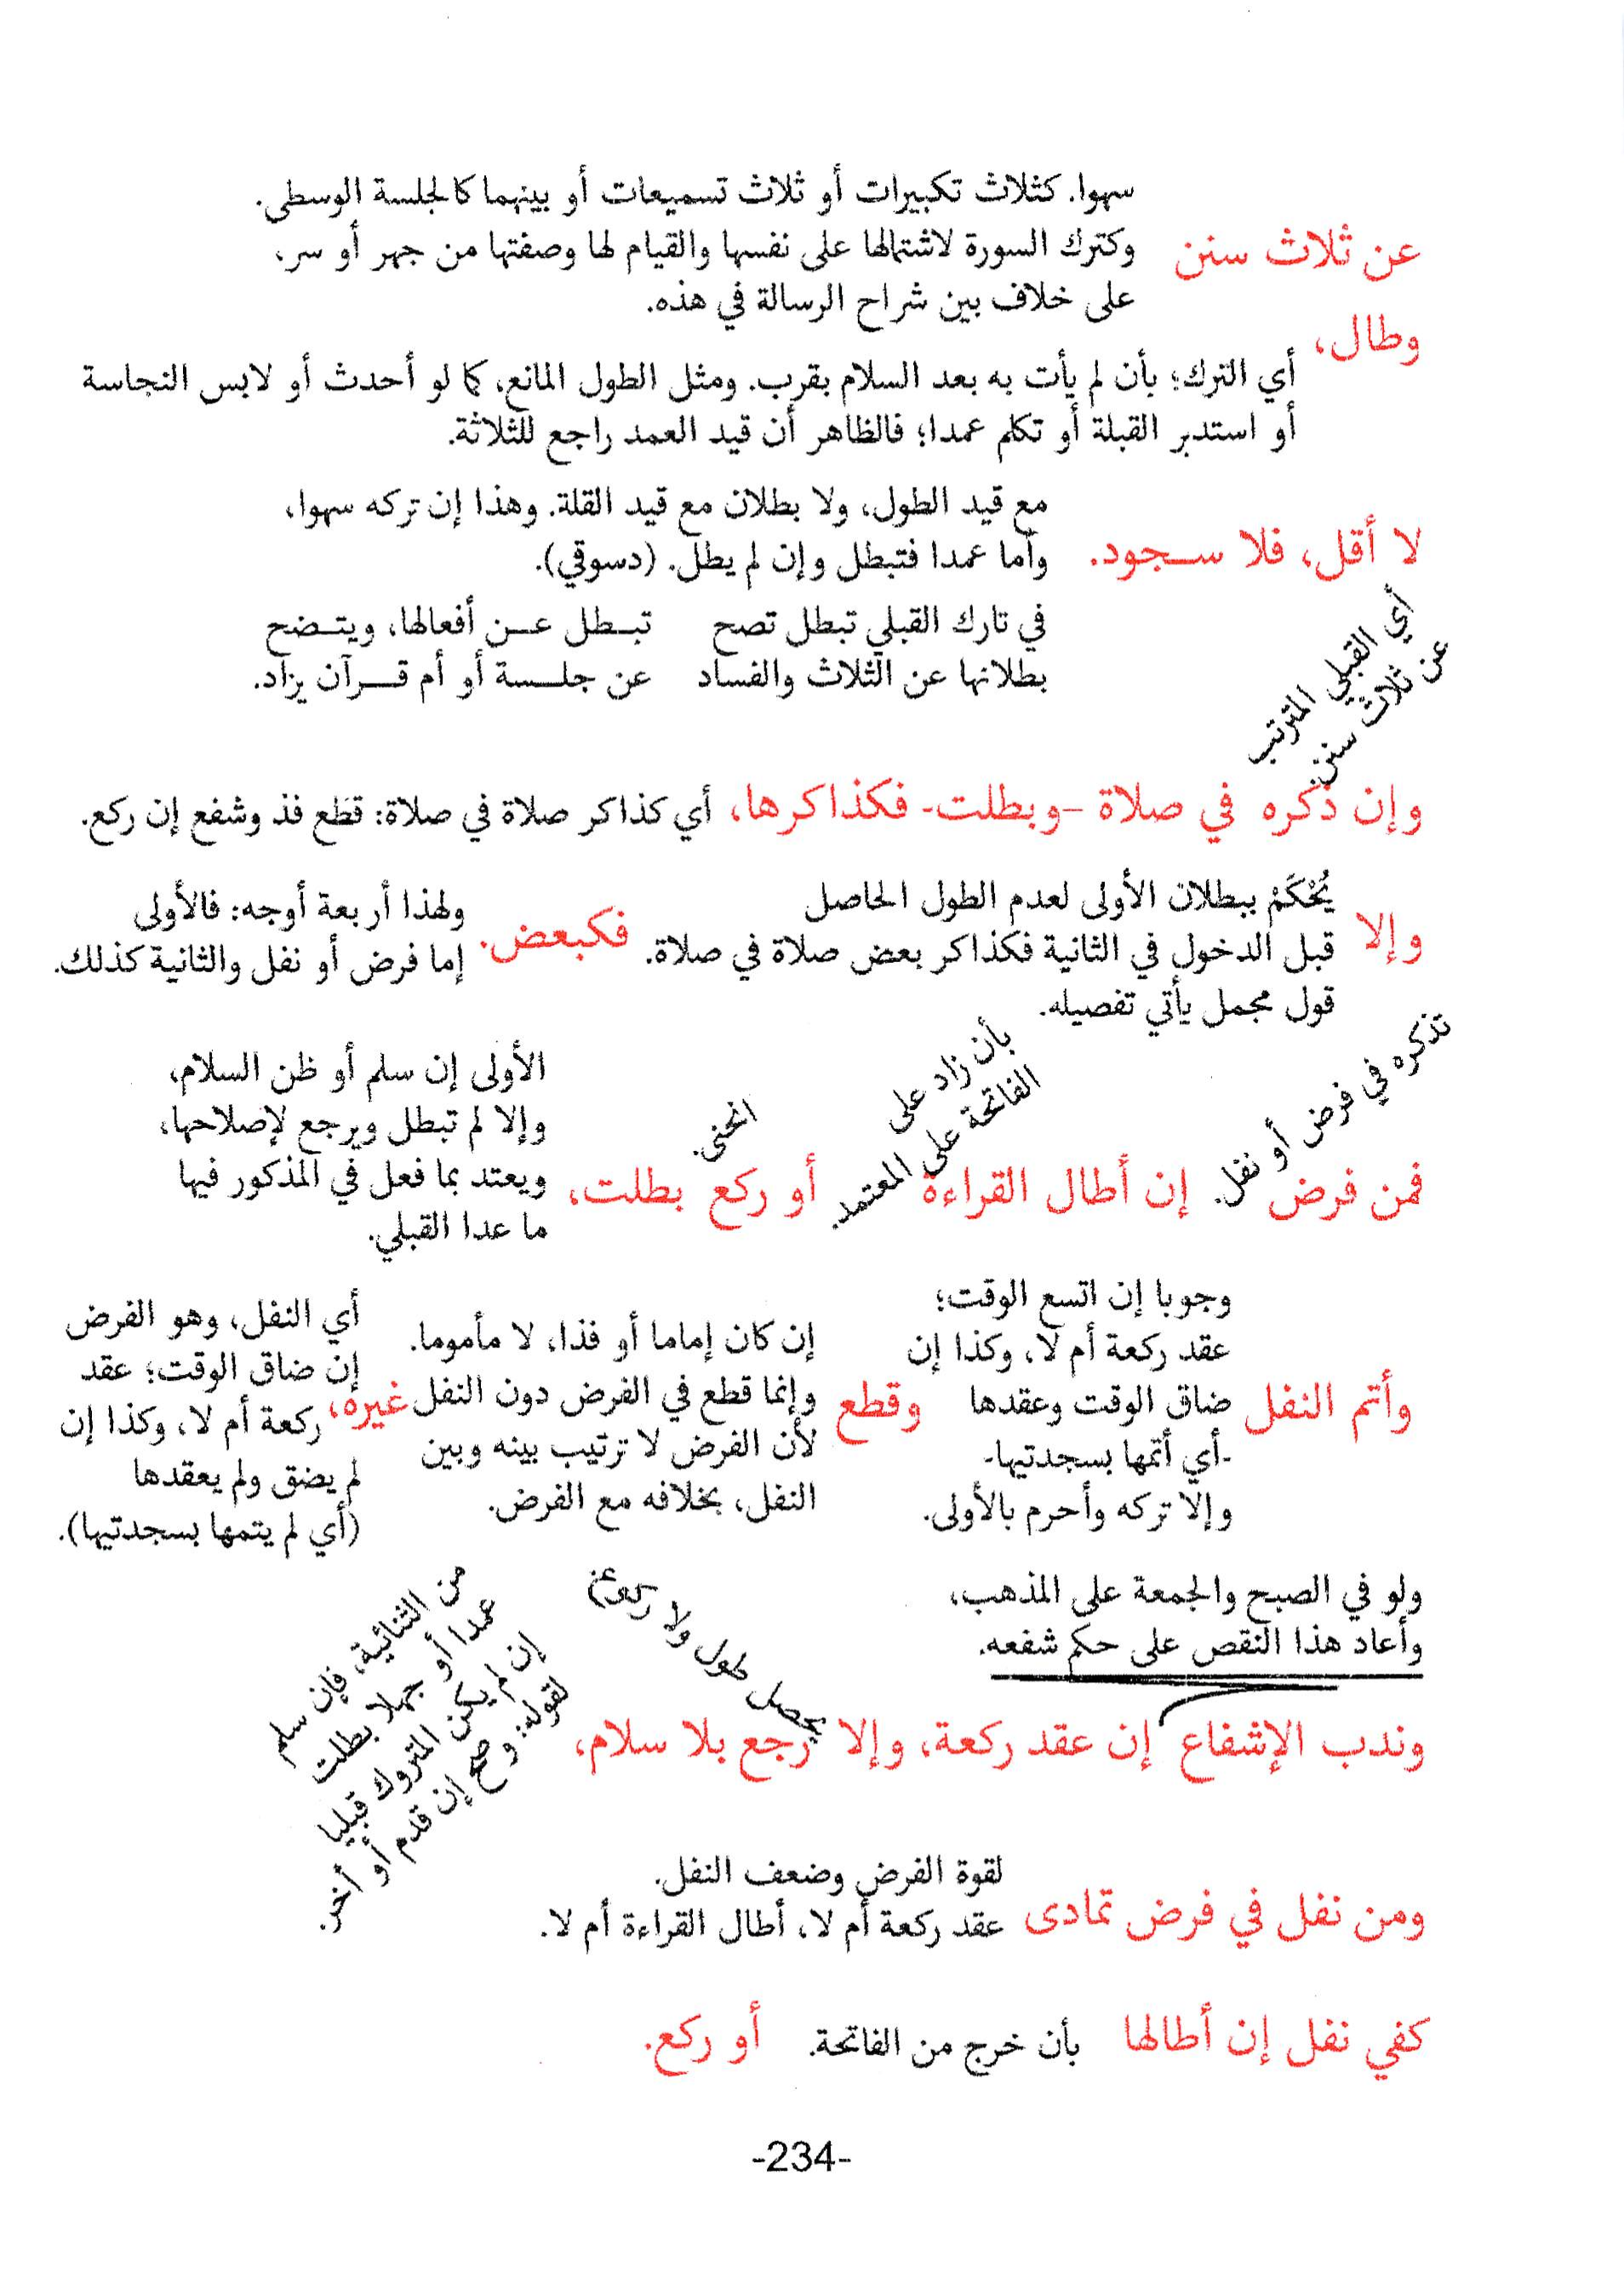 سهوا. كثلاث تكبيرات أو ثلاث تسميعات أو بينهما كالجلسة الوسطى.
عن ثلاث سنن
وكترك السورة لاشتمالها على نفسها والقيام لها وصفتها من جهر أو سر،
على خلاف بين شراح الرسالة في هذه.
وطال،
أي الترك؛ بأن لم يأت به بعد السلام بقرب. ومثل الطول المانع، كما لو أحدث أو لابس النجاسة
أو استدبر القبلة أو تكلم عمدا؛ فالظاهر أن قيد العمد راجع للثلاثة.
لا أقل، فلا سجود.
مع قيد الطول، ولا بطلان مع قيد القلة. وهذا إن تركه سهوا،
وأما عمدا فتبطل وإن لم يطل. (دسوقي).
في تارك القبلي تبطل تصح تبطل عن أفعالها، ويتضح
بطلانها عن الثلاث والفساد عن جلسة أو أم قرآن يزاد.
أي القبلي المترتب
عن ثلاث سنن
وإن ذكره في صلاة -وبطلت- فكذاكرها، أي كذاكر صلاة في صلاة: قطع فذ وشفع إن ركع.
وإلا
يُحْكَمْ ببطلان الأولى لعدم الطول الحاصل
قبل الدخول في الثانية فكذاكر بعض صلاة في صلاة.
قول مجمل يأتي تفصيله.
فكبعض.
ولهذا أربعة أوجه: فالأولى
إما فرض أو نفل والثانية كذلك.
فمن فرض
تذكره في فرض أو نفل.
إن أطال القراءة
بأن زاد على
الفاتحة على المعتمد.
أو ركع
انحنى.
بطلت،
الأولى إن سلم أو ظن السلام،
وإلا لم تبطل ويرجع لإصلاحها،
ويعتد بما فعل في المذكور فيها
ما عدا القبلي.
وأتم النفل
وجوبا إن اتسع الوقت؛
عقد ركعة أم لا، وكذا إن
ضاق الوقت وعقدها
-أي أتمها بسجدتيها-
وإلا تركه وأحرم بالأولى.
وقطع
إن كان إماما أو فذا، لا مأموما.
وإنما قطع في الفرض دون النفل
لأن الفرض لا ترتيب بينه وبين
النفل، بخلافه مع الفرض.
غيره،
أي النفل، وهو الفرض
إن ضاق الوقت؛ عقد
ركعة أم لا، وكذا إن
لم يضق ولم يعقدها
(أي لم يتمها بسجدتيها).
ولو في الصبح والجمعة على المذهب،
وأعاد هذا النقص على حكم شفعه.
وندب الإشفاع إن عقد ركعة، وإلا رجع بلا سلام،
يحصل طول ولا ركوع
من الثنائية، فإن سلم
عمدا أو جهلا بطلت
إن لم يكن المتروك قبليا
لقوله: وصح إن قدم أو أخر.
ومن نفل في فرض تمادى
لقوة الفرض وضعف النفل.
عقد ركعة أم لا، أطال القراءة أم لا.
كفي نفل إن أطالها بأن خرج من الفاتحة. أو ركع.
-234-